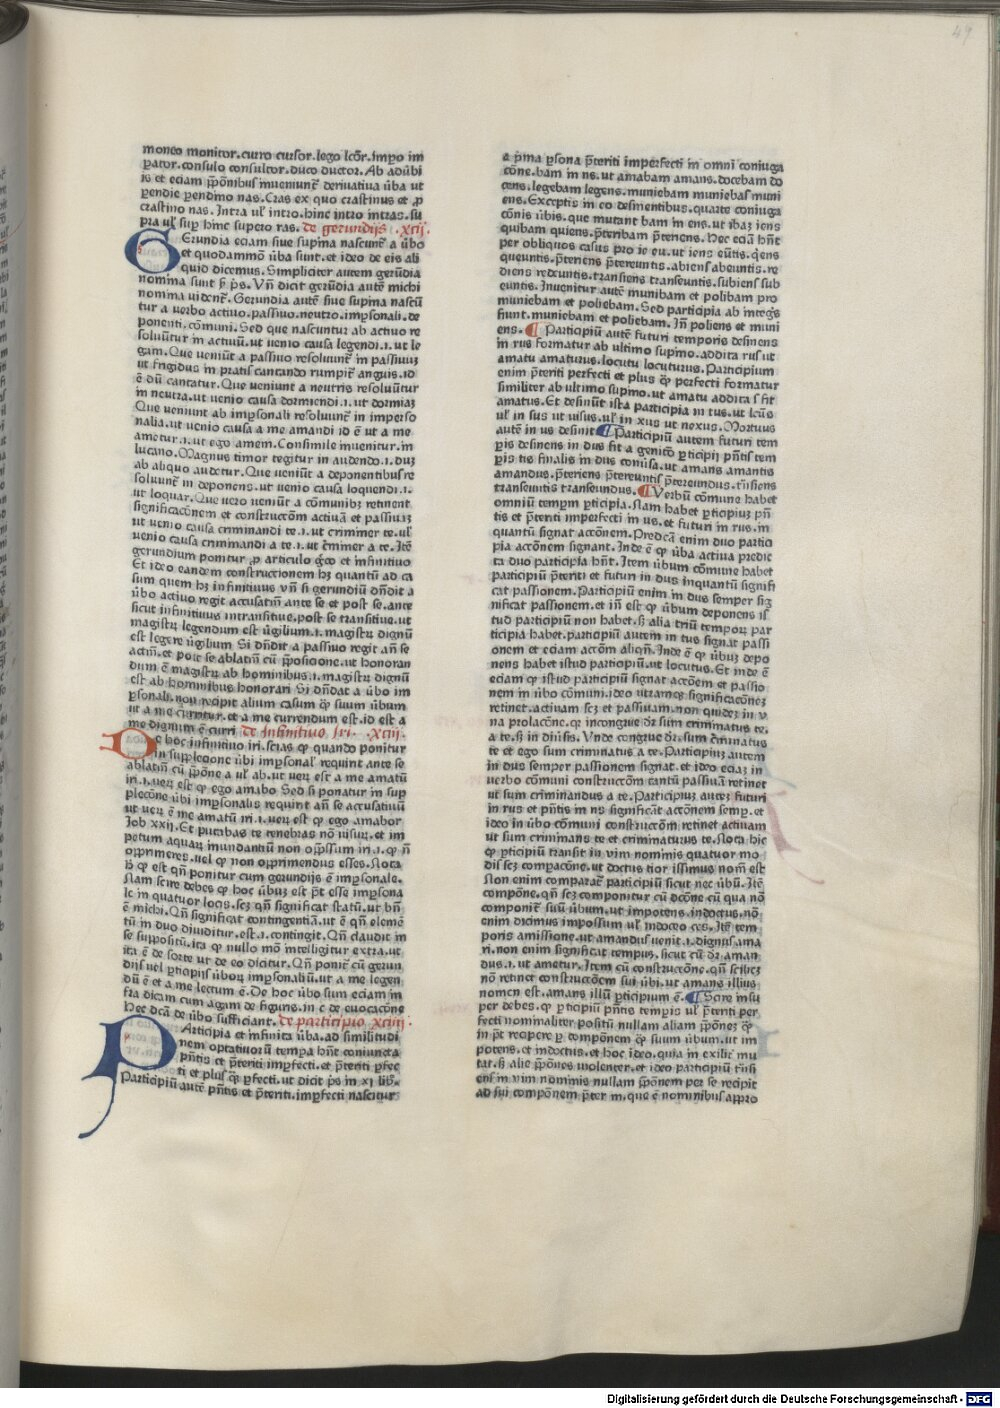 49
moneo monitor.curro cursor.lego lcõr.imꝑo im
ꝑator.consulo consultor.duco ductor.Ab adũbi
is et eciam p̃ponibus inueniunt̃ deriuatiua ũba ut
ꝑendie ꝑendino nas.Cras ex quo crastinus et ꝓ
crastino nas.Intra ul̃ intro.hinc intro intras.su
pra ul̃ suꝑ hinc supero ras. de gerundijs .xcij.
GErundia eciam siue supina nascunt̃ a ũbo
et quodammõ ũba sunt.et ideo de eis ali
quid dicemus.Simpliciter autem gerũdia
nomina sunt ẜ p̃s.Vñ dicit gerũdia autẽ michi
nomina uident̃.Gerundia autẽ siue supina nascũ
tur a verbo actiuo.passiuo.neutro.imꝑsonali.de
ponenti.cõmuni.Sed que nascuntur ab actiuo re
soluũtur in actiuũ.ut uenio causa legendi.i.ut le
gam.Que veniũt a passiuo resoluunt̃ in passiuũ
ut frigidus in pratis cantando rumpit̃ anguis.id
ẽ dũ cantatur.Que veniunt a neutris resoluũtur
in neutra.ut uenio causa dormiendi.i.ut dormiaꝫ
Que veniunt ab imꝑsonali resoluunt̃ in imperso
nalia.ut uenio causa a me amandi id ẽ ut a me
ametur.i.ut ego amem.Consimile inuenitur in
lucano.Magnus timor tegitur in audendo.i.duꝫ
ab aliquo audetur.Que veniũt a deponentibus re
soluunt̃ in deponens.ut uenio causa loquendi.i.
ut loquar.Que vero veniũt a cõmunibꝫ retinent
significacõnem et construccõm actiuã et passiuaꝫ
ut venio causa criminandi te.i.ut criminer te.ul̃
venio causa criminandi a te.i.ut c̃miner a te.Itẽ
gerundium ponitur ꝓ articulo g̃co et infinitiuo
Et ideo eandem construccionem hꝫ quantũ ad ca
sum quem hꝫ infinitiuus vñ si gerundiũ dñdit a
ũbo actiuo regit accusatiũ ante se et post se.ante
sicut infinitiuus intransitiue.post se transitiue.ut
magistꝝ legendum est ũgilium.i.magistꝝ dignũ
est legere ũgilium Si dñdit a passiuo regit añ se
actiũ.et post se ablatiũ cũ p̃posicione.ut honoran
dum ẽ magistꝝ ab hominibus.i.magistꝝ dignũ
est ab hominibus honorari Si dñdat a ũbo im
ꝑsonali.non recipit alium casum ꝙ̃ suum ũbum
ut a me curritur.et a me currendum est.id est a
me dignum ẽ curri de Infinitiuo Iri. .xciij.
De hoc infinitiuo iri.scias ꝙ quando ponitur
in supplecione ũbi impsonal̃ requirit ante se
ablatiũ cũ p̃põne a ul̃ ab.ut veꝝ est a me amatũ
iri.i.veꝝ est ꝙ ego amabo Sed si ponatur in sup
plecõne ũbi imꝑsonalis requirit añ se accusatiuũ
ut veꝝ ẽ me amatũ iri.i.veꝝ est ꝙ ego amabor
Iob xxij.Et putabas te tenebras nõ uisuꝝ.et im
petum aquaꝝ inundantiũ non opp̃ssum iri.i.ꝙ ñ
opprimeres.uel ꝙ non opprimendus esses.Nota
ꝙ est qñ ponitur cum gerundijs ẽ impsonale.
Nam scire debes ꝙ hoc ũbuꝫ est p̃t esse impsona
le in quatuor locis.scꝫ qñ significat statũ.ut bñ
ẽ michi.Qñ significat contingentiã.ut ẽ qñ elemẽ
tũ in duo diuiditur.est.i.contingit.Qñ claudit in
se suppositũ.ita ꝙ nullo mõ intelligitur extra.ut
ita ẽ de sorte ut de eo dicitur.Qñ ponit̃ cũ gerun
dijs uel ꝑticipijs ũboꝝ imꝑsonaliũ.ut a me legen
dũ ẽ et a me lectum ẽ.De hoc ũbo sum eciam in
fra dicam cum agam de figuris.in c̃ de euocacõne
Hec dicã de ũbo sufficiant. de participio xciiij
PArticipia et infinita ũba.ad similitudi
nem optatiuoꝝ tempa hñt coniuncta
p̃ntis et p̃teriti imꝑfecti.et p̃teriti ꝑfec
ti et plusꝙ̃ ꝑfecti.ut dicit p̃s in xi libꝭ.
Participiũ autẽ p̃ntis et p̃teriti.imꝑfecti nascitur
a p̃ma ꝑsona p̃teriti imperfecti in omni coniuga
cõne.bam in ns.ut amabam amans.docebam do
cens.legebam legens.muniebam muniebas muni
ens.Exceptis in eo desinentibus.quarte coniuga
cõnis ũbis.que mutant bam in ens.ut ibaꝫ iens
quibam quiens.p̃teribam p̃teriens.Hec eciã hñt
per obliquos casus pro ie eu.ut iens eũtis.q̃ens
queuntis.p̃teriens p̃tereuntis.abiens abeuntis.re
diens redeuntis.transiens transeuntis.subiens sub
euntis.Inuenitur autẽ munibam et polibam pro
muniebam et poliebam.Sed participia ab integꝭ
fiunt.muniebam et poliebam.Iñ poliens et muni
ens. ¶ Participiũ autẽ futuri temporis desinens
in rus formatur ab ultimo supino.addita rus ut
amatu amaturus.locutu locuturus.Participium
enim p̃teriti perfecti et plus ꝙ̃ perfecti formatur
similiter ab ultimo supino.ut amatu addita s fit
amatus.Et desinũt ista participia in tus.ut lectus
ul̃ in sus ut uisus.ul̃ in xus ut nexus.Mortuus
autẽ in us desinit ¶ Participiũ autem futuri tem
ꝑis desinens in dus fit a genitõ ꝑticipij p̃ntis tem
ꝑis tis finalis in dus conũsa.ut amans amantis
amandus.p̃teriens p̃tereuntis p̃tereundus.trãsiens
transeuntis transeundus. ¶ Verbũ cõmune habet
omniũ tempꝝ ꝑticipia.Nam habet ꝑticipiuꝫ p̃n
tis et p̃teriti imperfecti in us.et futuri in rus.in
quantũ signat accõnem.Predcã enim duo partici
pia accõnem signant.Inde ẽ ꝙ ũba actiua predic
ta duo participia hñt.Item ũbum cõmune habet
participiũ p̃teriti et futuri in dus inquantũ signifi
cat passionem.Participiũ enim in dus semper sig
nificat passionem.et iñ est ꝙ ũbum deponens is
tud participiũ non habet.ẜ alia triũ tempoꝝ par
ticipia habet.participiũ autem in tus signat passi
onem et eciam accõm aliqñ.Inde ẽ ꝙ ũbuꝫ depo
nens habet istud participiũ.ut locutus.Et inde ẽ
eciam ꝙ istud participiũ signat accõem et passio
nem in ũbo cõmuni.ideo utramꝙ significacõneꝫ
retinet.actiuam scꝫ et passiuam.non quideꝫ in v
na prolacõne.ꝙ incongrue dꝛ sum criminatus te.
a te.ẜ in diũsis.Vnde congrue dꝛ.sum c̃minatus
te et ego sum criminatus a te.Participiuꝫ autem
in dus semper passionem signat.et ideo eciaꝫ in
verbo cõmuni construccõm tantũ passiuã retinet
ut sum criminandus a te.Participiuꝫ auteꝫ futuri
in rus et p̃ntis in ns significãt accõnem semꝑ.et
ideo in ũbo cõmuni construccõm retinet actiuam
ut sum criminans te et criminaturus te.Nota hic
ꝙ ꝑticipiũ transit in vim nominis quatuor mo
dis scꝫ compacõne.ut doctus tior issimus nom̃ est
Non enim comparat̃ participiũ sicut nec ũbũ.Itẽ
compõne.qñ scꝫ componitur cũ dcõne cũ qua nõ
componit̃ suũ ũbum.ut impotens.indoctus.nõ
enim dicimus impossum ul̃ indoceo ces.Itẽ tem
poris amissione.ut amandus uenit.i.dignus ama
ri.non enim significat tempus.sicut cũ dꝛ aman
dus.i.ut ametur.Item cũ construccõne.qñ scilicꝫ
nõ retinet construccõem sui ũbi.ut amans illius
nomen est.amans illũ ꝑticipium ẽ. ¶ Scire insu
per debes.ꝙ ꝑticipiũ p̃ntis tempis ul̃ p̃teriti per
fecti nominaliter positũ nullam aliam p̃põneꝫ ꝙ̃
in p̃t recipere ꝑ compõnem ꝙ̃ suum ũbum.ut im
potens.et indoctus.et hoc ideo.quia in exiliẽ mu
tat.ẜ alie p̃põnes violenter.et ideo participiũ trãsi
ens in vim nominis nullam p̃põnem per se recipit
ad sui compõnem p̃ter in.que ẽ nominibus appro
Digitalisierung gefördert durch die Deutsche Forschungsgemeinschaft - DFG